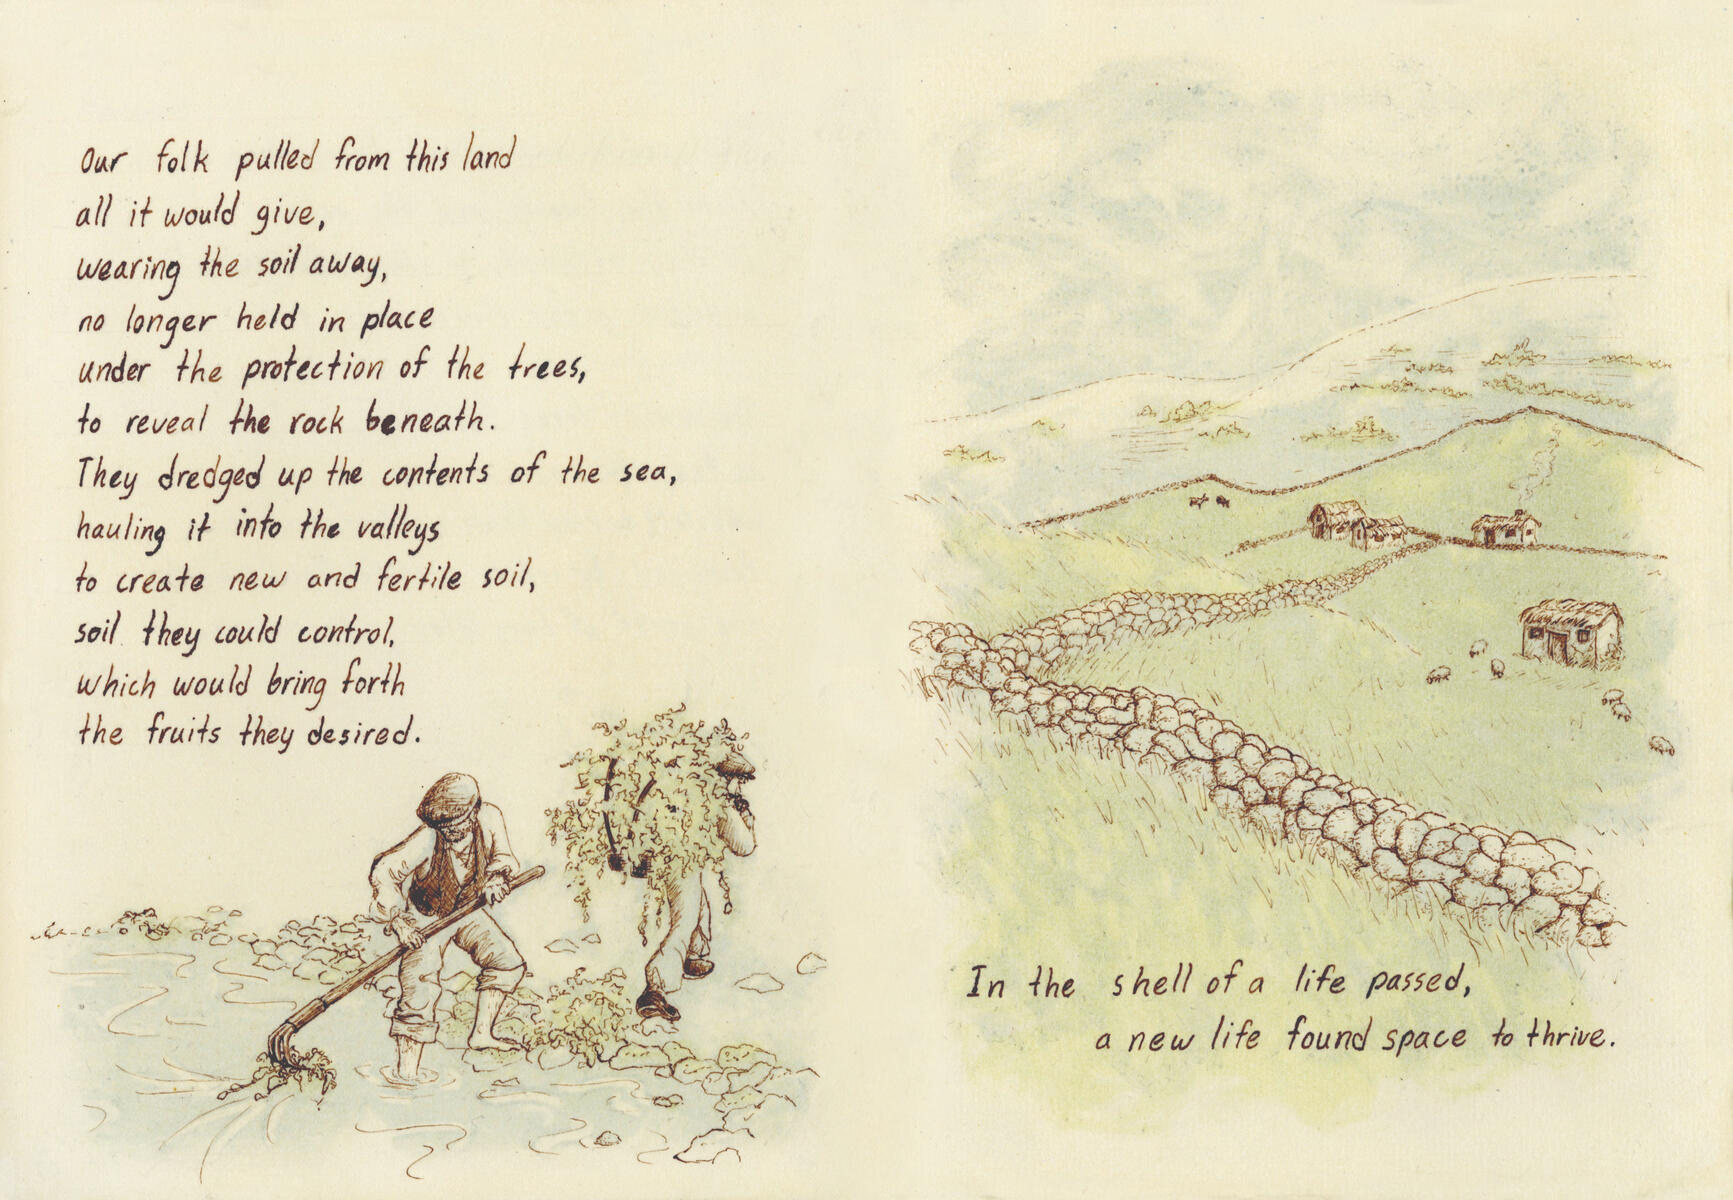 Our folk pulled from this land
all it would give,
wearing the soil away,
no longer held in place
under the protection of the trees,
to reveal the rock beneath.
They dredged up the contents of the sea,
hauling it into the valleys
to create new and fertile soil,
soil they could control,
which would bring forth
the fruits they desired.
In the shell of a life passed,
a new life found space to thrive.